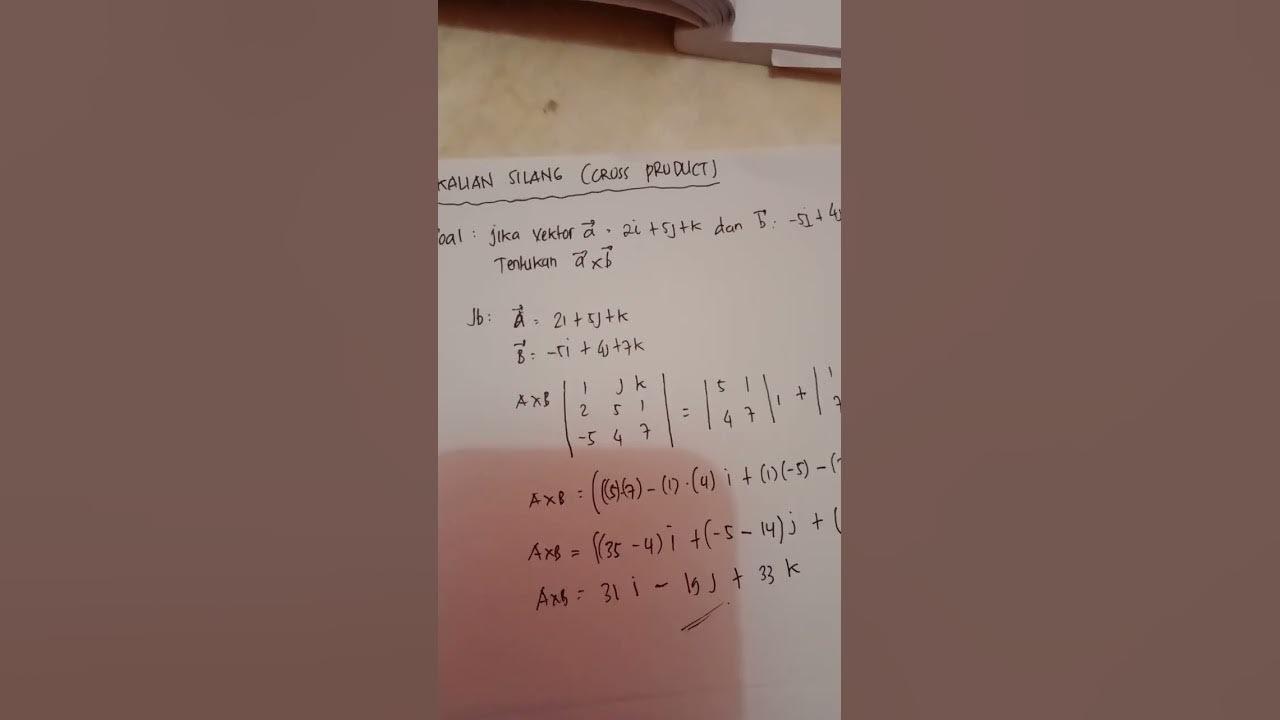 KALIAN SILANG (CROSS PRODUCT)
oal : jika vektor a⃗ = 2i + 5j + k dan b⃗ : -5j + 4j
Tentukan a⃗ x b⃗
Jb: a⃗ = 2i + 5j + k
B⃗ = -5i + 4j + 7k
AxB | i j k | = | 5 1 | i + | 1
| 2 5 1 | | 4 7 | | 7
| -5 4 7 |
AxB = (((5).(7) - (1).(4) i + (1)(-5) - (
AxB = ((35 - 4) i + (-5 - 14) j + (
AxB = 31 i - 19 j + 33 k